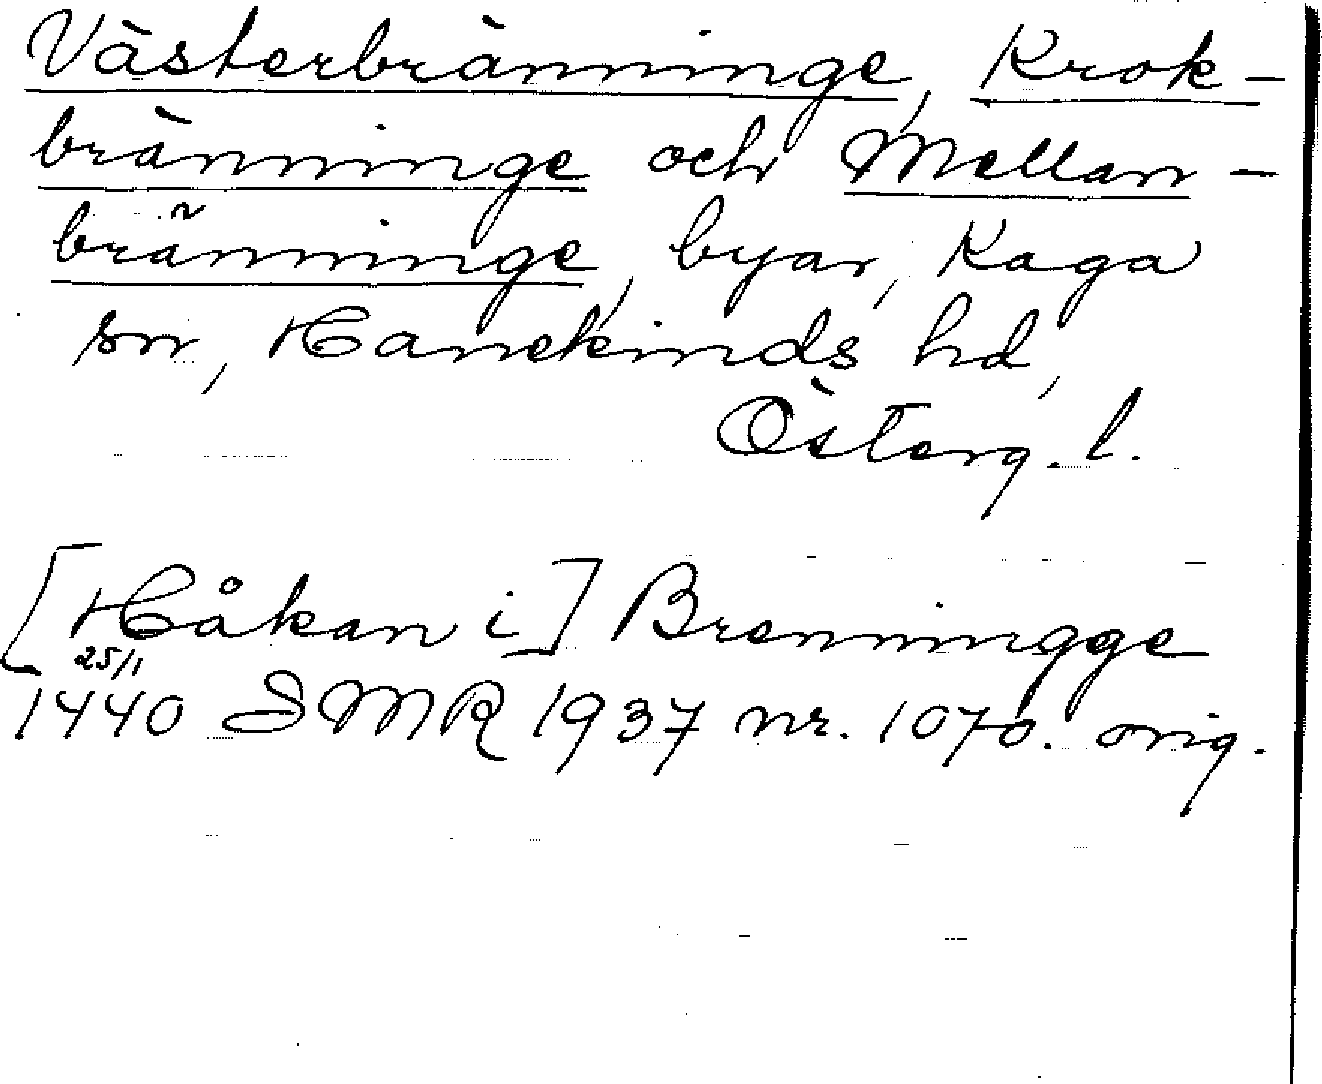 Västerbränninge, Krok-
bränninge och Mellan-
bränninge, byar, Kaga
sn, Hanekinds hd,
Österg. l.
[Håkan i] Brenningge
25/1
1440 SMR 1937 nr. 1070. orig.